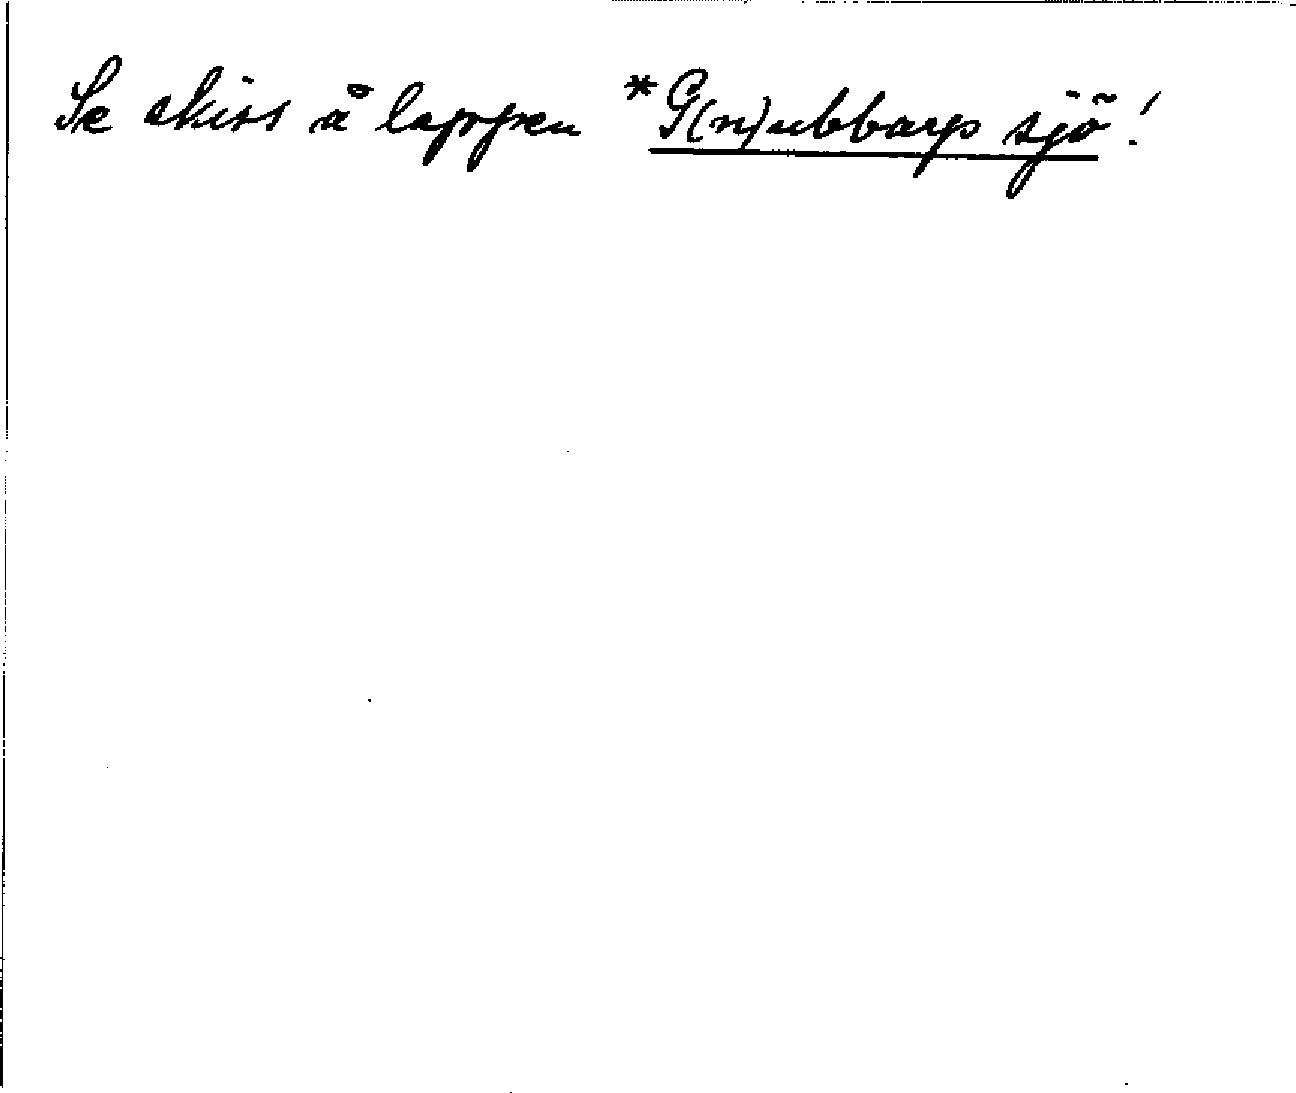 Se skiss å lappen *G(n)ubbarp sjö!